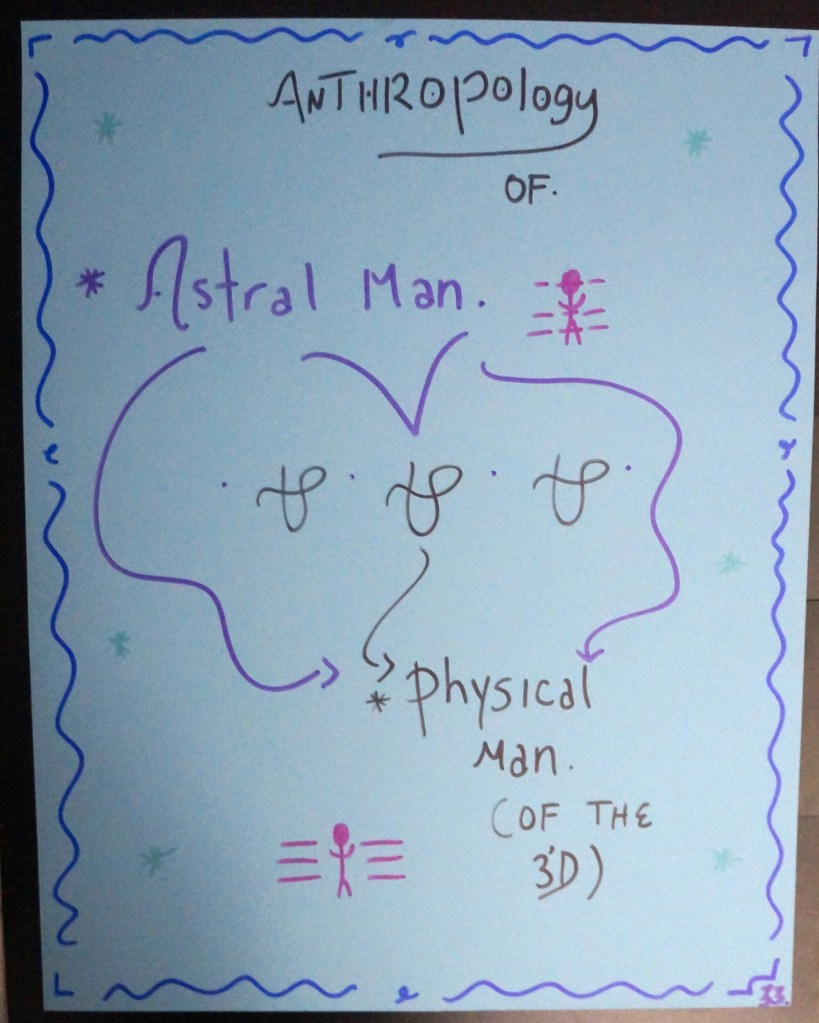 ANTHROpology
OF.
* Astral Man.
* physical
Man.
(OF THE
3'D)
33.